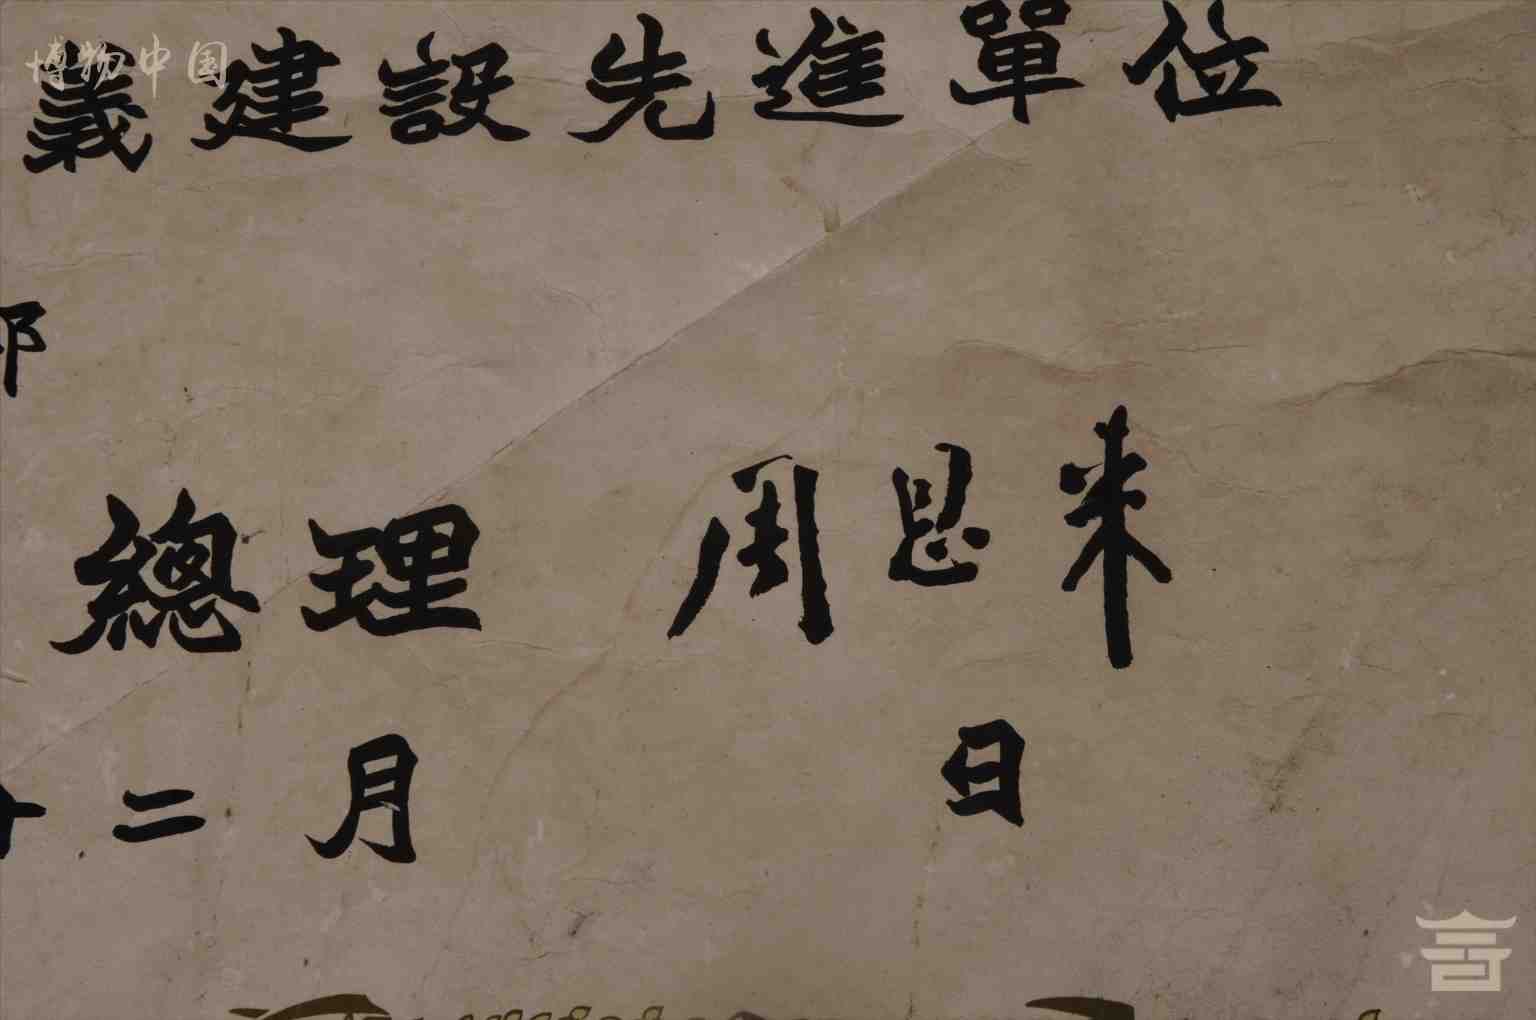 博物中国
義建設先進單位
總理 周恩来
十二月 日